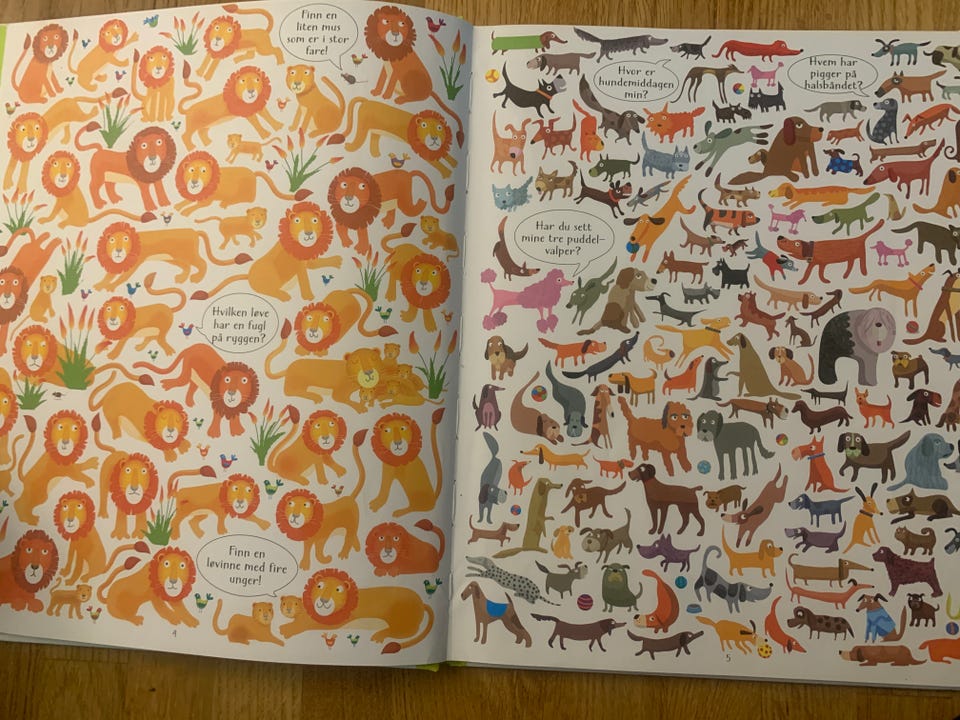 Finn en
liten mus
som er i stor
fare!
Hvilken løve
har en fugl
på ryggen?
Finn en
løvinne med fire
unger!
4
Hvor er
hundemiddagen
min?
Hvem har
pigger på
halsbåndet?
Har du sett
mine tre puddel-
valper?
5